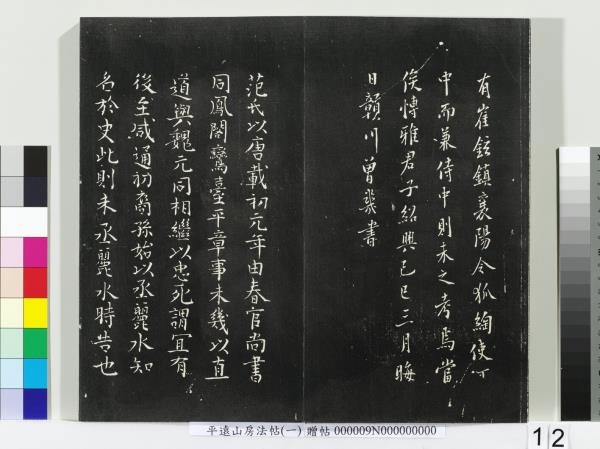 有崔鉉鎮襄陽令狐綯使河
中而兼侍中則未之考焉當
俟博雅君子紹興己巳三月晦
日贛川曾幾書
范氏以唐載初元年由春官尚書
同鳳閣鸞臺平章事未幾以直
道與魏元同相繼以忠死謂宜有
後至咸通初裔孫始以丞麗水知
名於史此則未丞麗水時告也
平遠山房法帖(一) 贈帖 000009N000000000
12